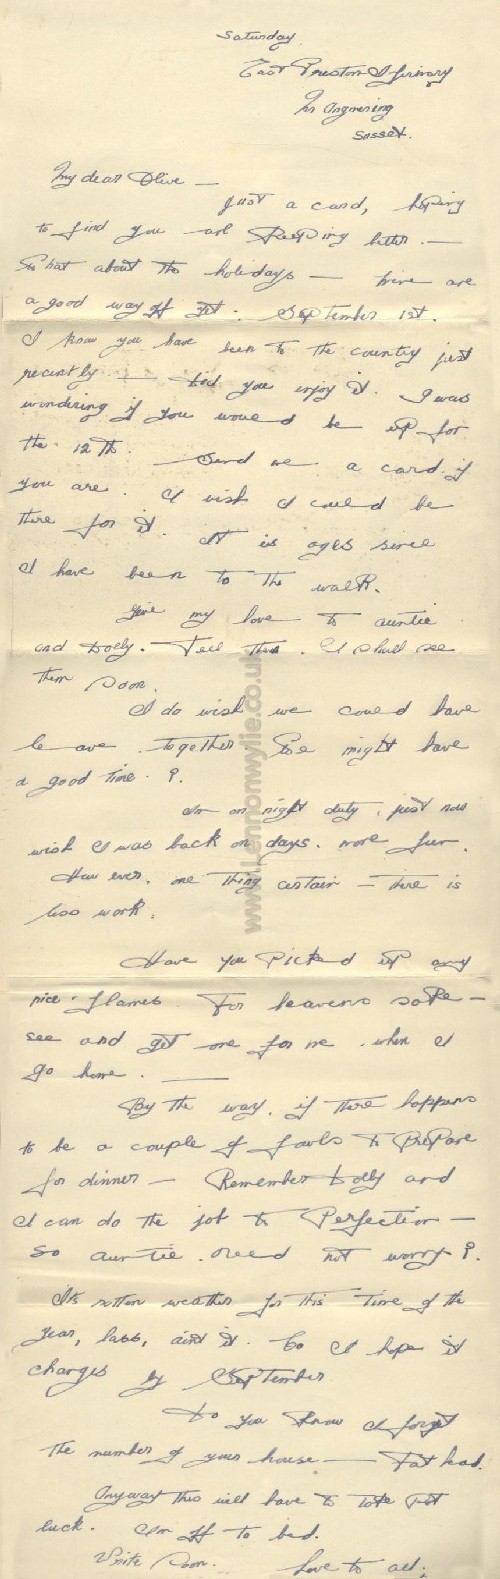 Saturday
East Preston Infirmary
Nr Angmering
Sussex.
My dear Olive —
Just a card, hoping
to find you are keeping better. —
What about the holidays — mine are
a good way off yet. September 1st.
I know you have been to the country just
recently — Did you enjoy it. I was
wondering if you would be up for
the 12th. — Send me a card if
you are. I wish I could be
there for it. It is ages since
I have been to the walk.
Give my love to auntie
and Dolly. Tell them I shall see
them soon.
I do wish we could have
leave together We might have
a good time. ?.
Im on night duty, just now
wish I was back on days. more fun.
However, one thing certain — there is
less work.
Have you picked up any
nice flames For heavens sake —
see and get one for me when I
go home. —
By the way, if there happens
to be a couple of fowls to prepare
for dinner — Remember Dolly and
I can do the job to Perfection —
So auntie need not worry ?.
Its rotten weather for this time of the
year, lass, aint it. So I hope it
changes by September
Do you know I forget
the number of your house — Fat head.
Anyway this will have to take pot
luck. Im off to bed.
Write soon. Love to all.
www.lennonwylie.co.uk